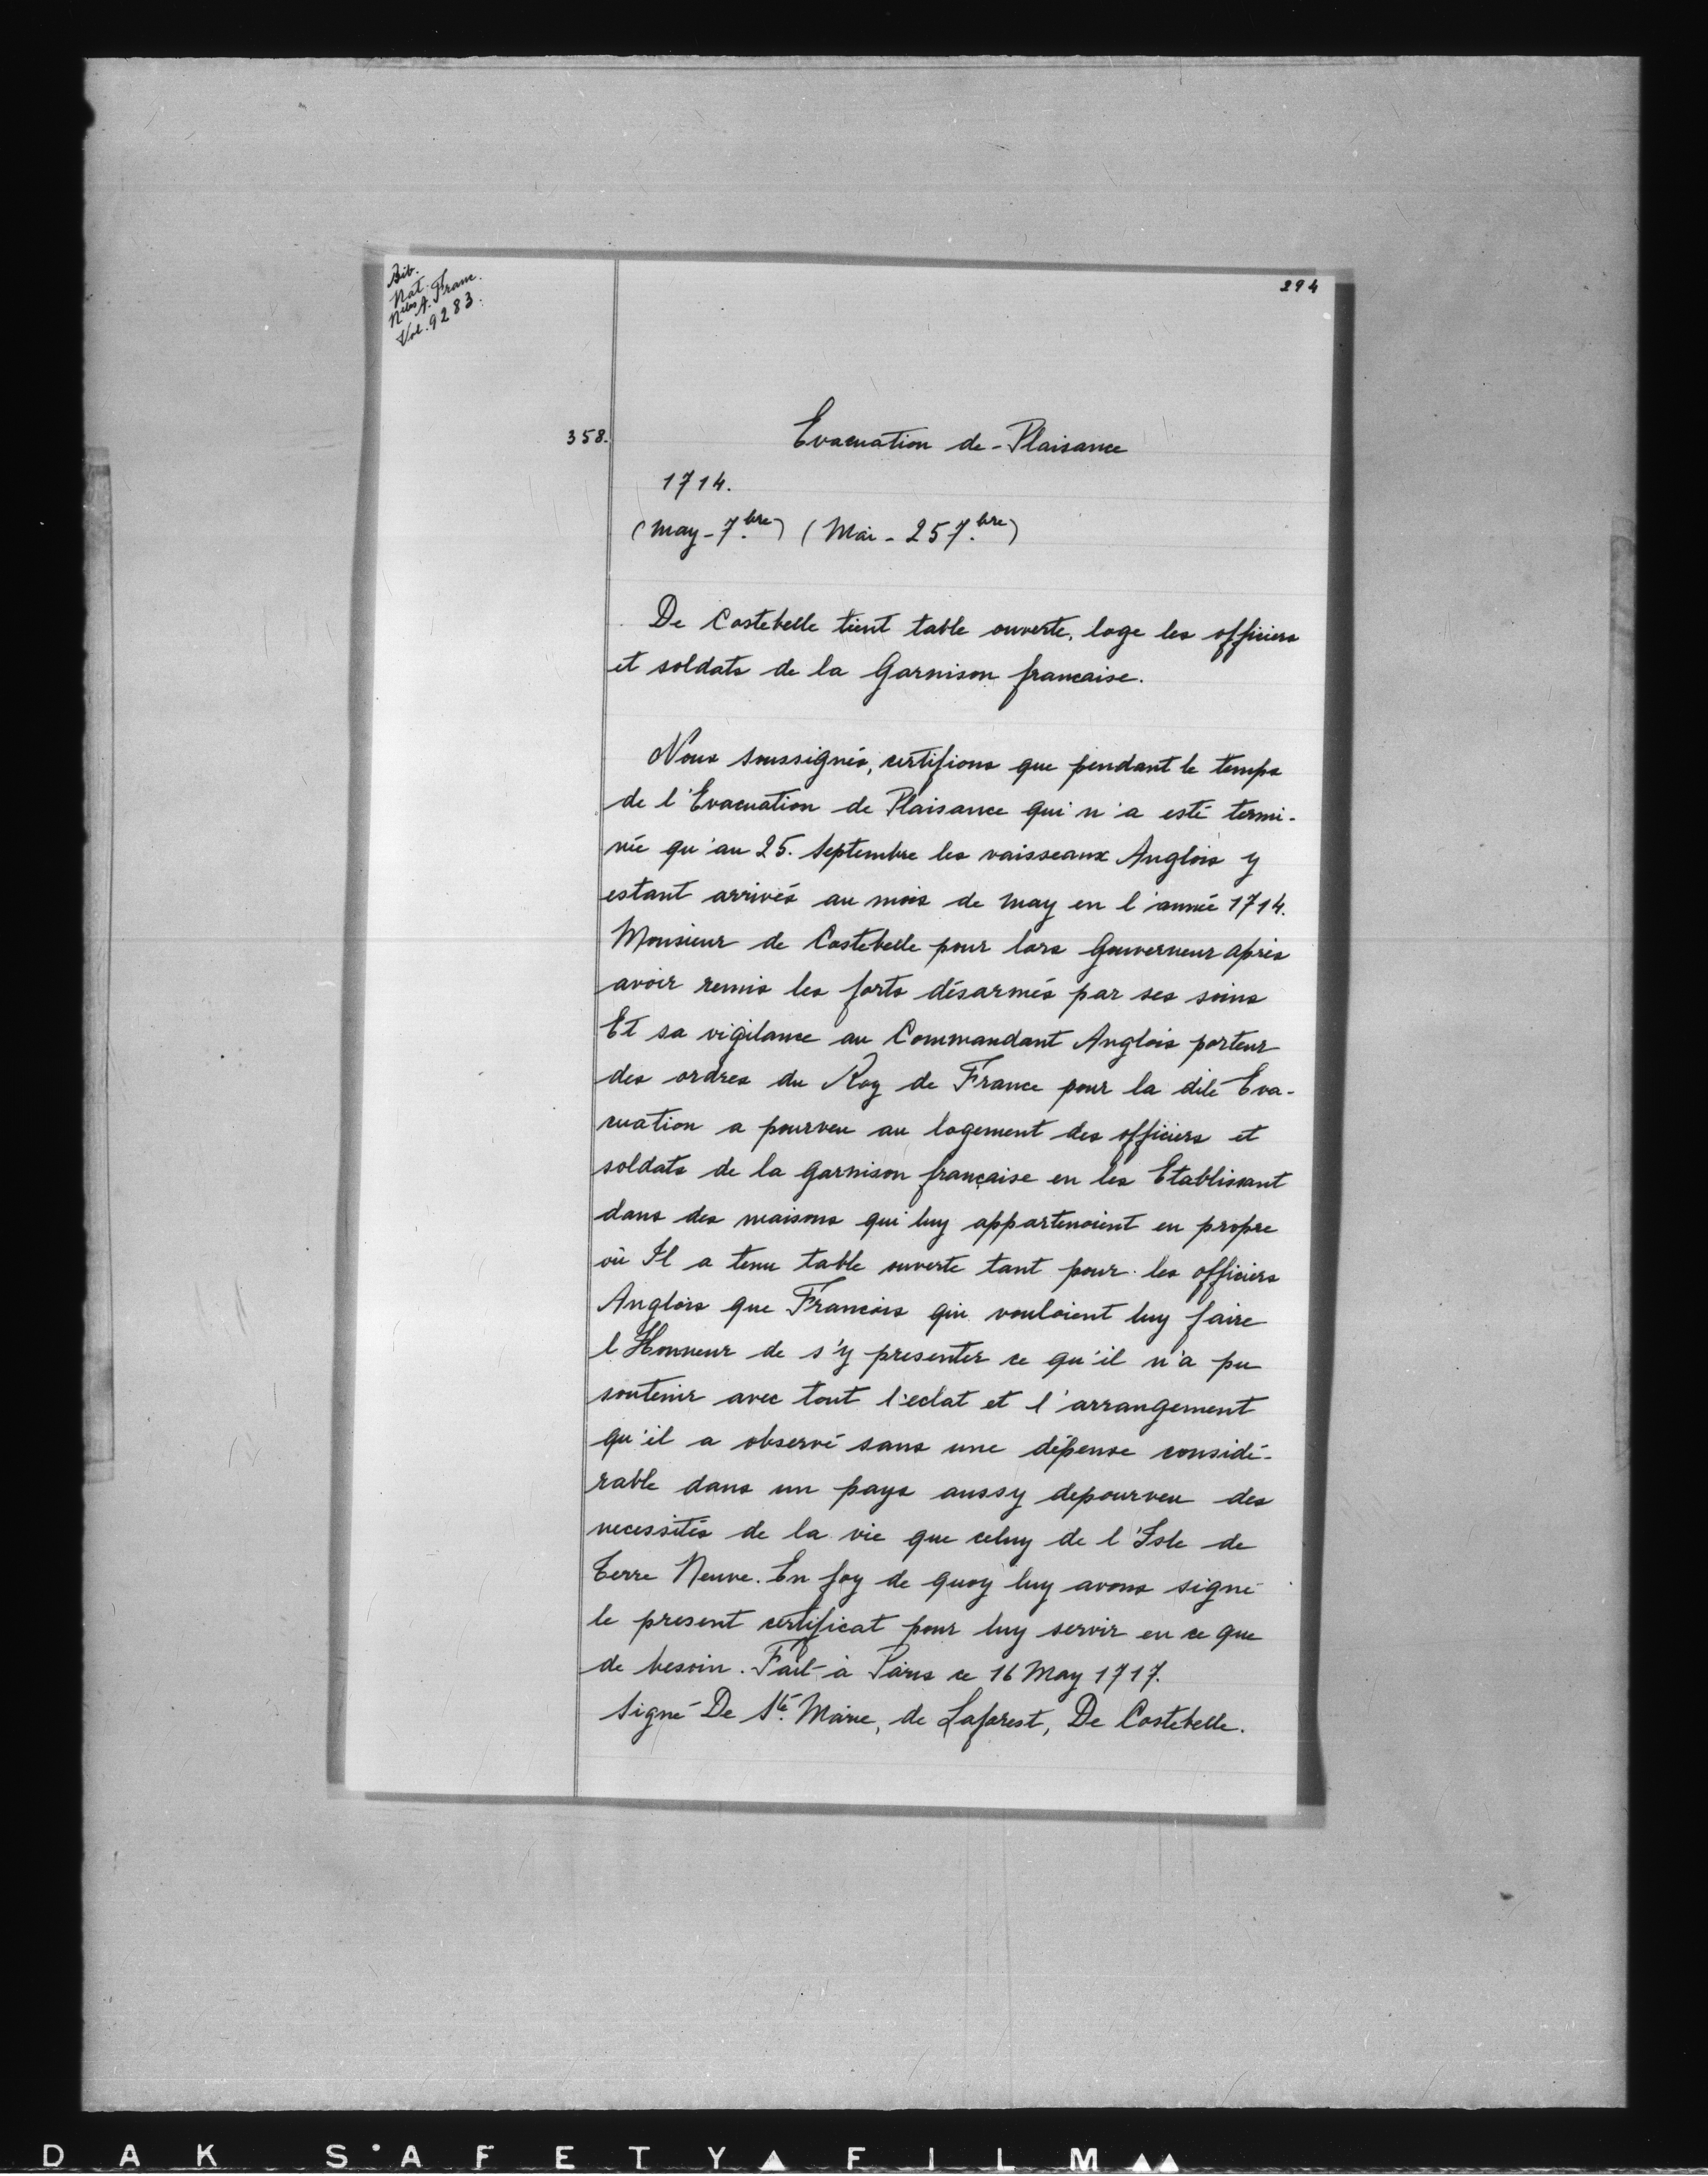 Bib.
Nat.
Nelles A. Franc.
Vol. 9283.
294
358.
Evacuation de Plaisance
1714.
(May - 7.bre) (Mai - 25 7.bre)
De Costebelle tient table ouverte, loge les officiers
et soldats de la Garnison francaise.
Nous soussignés, certifions que pendant le temps
de l'Evacuation de Plaisance qui n'a esté termi-
née qu'au 25. Septembre les vaisseaux Anglois y
estant arrivés au mois de May en l'année 1714.
Monsieur de Costebelle pour lors Gouverneur après
avoir remis les forts désarmés par ses soins
Et sa vigilance au Commandant Anglois porteur
des ordres du Roy de France pour la dite Eva-
cuation a pourveu au logement des officiers et
soldats de la garnison française en les Etablissant
dans des maisons qui luy appartenoient en propre
où Il a tenu table ouverte tant pour les officiers
Anglois que Francois qui vouloient luy faire
l'Honneur de s'y presenter ce qu'il n'a pu
soutenir avec tout l'eclat et l'arrangement
qu'il a observé sans une dépense considé-
rable dans un pays aussy depourveu des
necessités de la vie que celuy de l'Isle de
Terre Neuve. En foy de quoy luy avons signé
le present certificat pour luy servir en ce que
de besoin. Fait à Paris ce 16 May 1717.
Signé De Ste. Marie, de Laforest, De Costebelle.
DAK SAFETY FILM